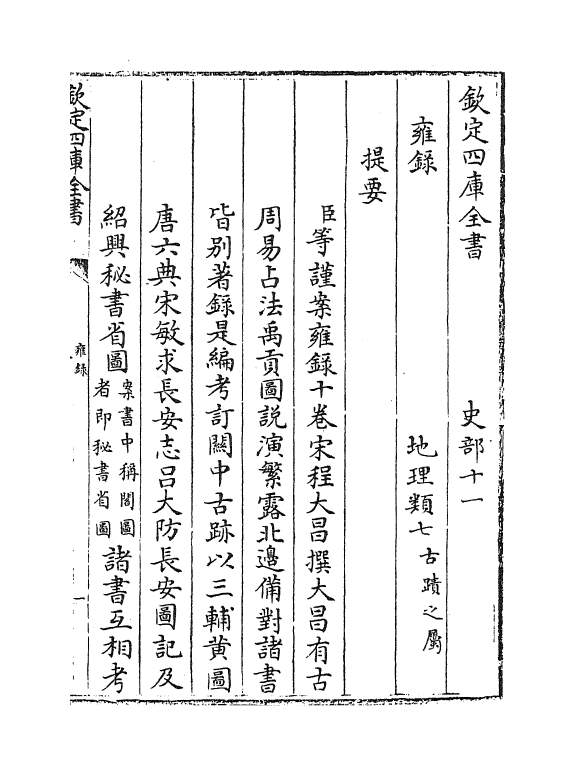 欽定四庫全書　史部十一
雍錄　地理類七古蹟之屬
提要
臣等謹案雍錄十卷宋程大昌撰大昌有古
周易占法禹貢圖說演繁露北邊備對諸書
皆别著錄是編考訂關中古跡以三輔黄圖
唐六典宋敏求長安志吕大防長安圖記及
紹興秘書省圖案書中稱閣圖者即秘書省圖諸書互相考
欽定四庫全書
雍錄
一